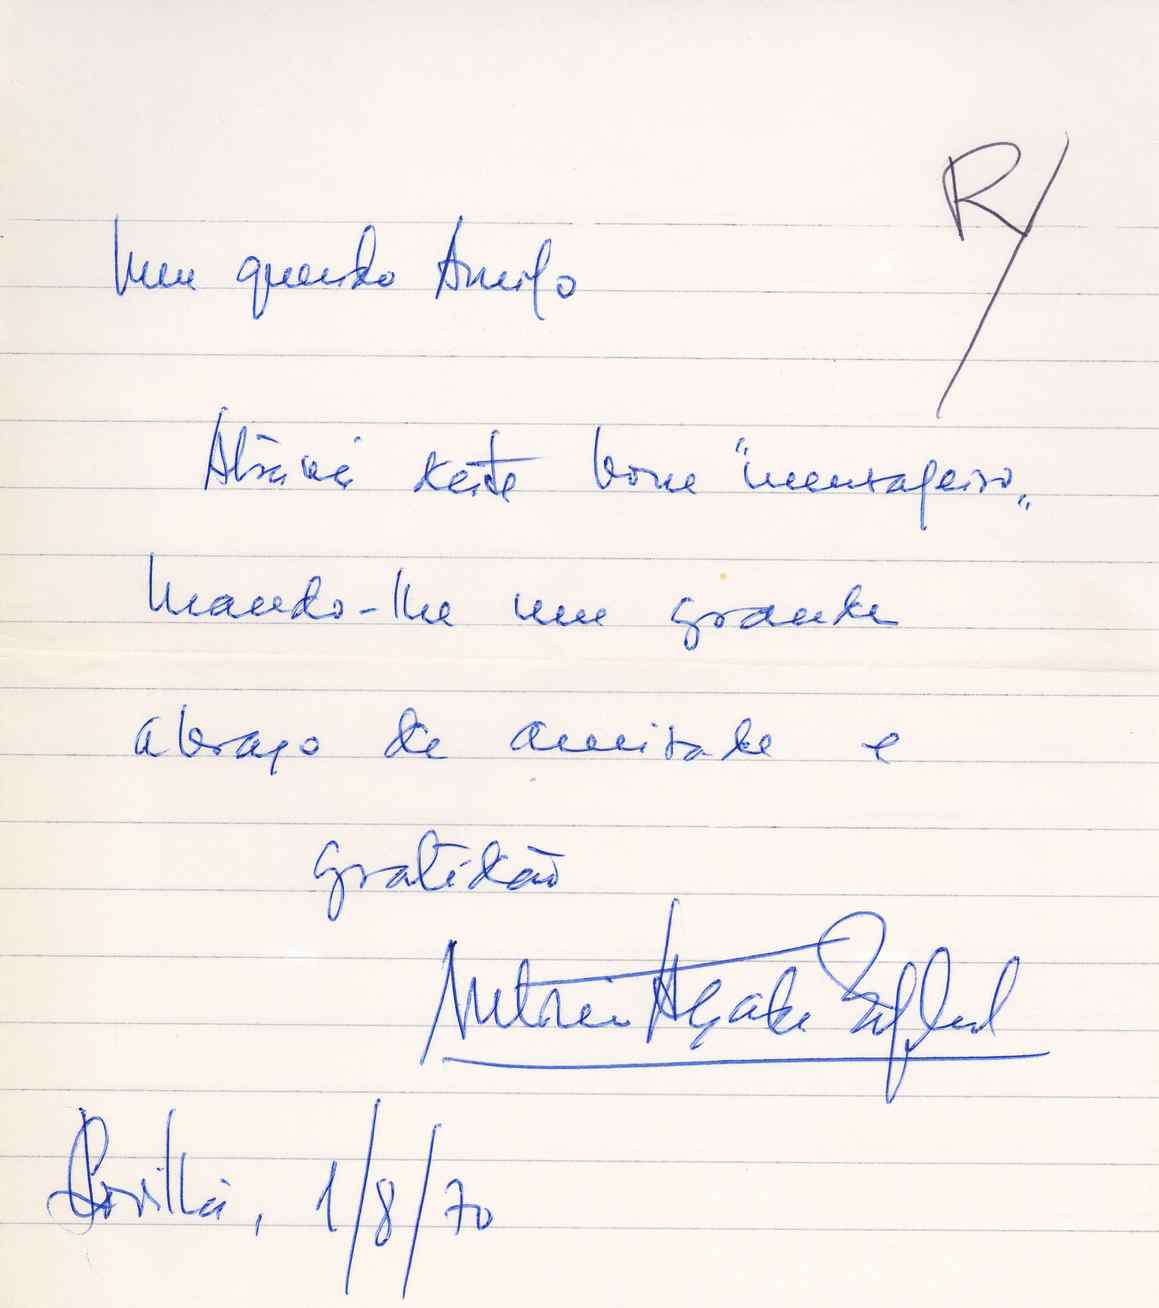 R/
Meu querido Amigo
Através deste bom "mensageiro"
mando-lhe um grande
abraço de amizade e
gratidão
António Agade
1/8/70